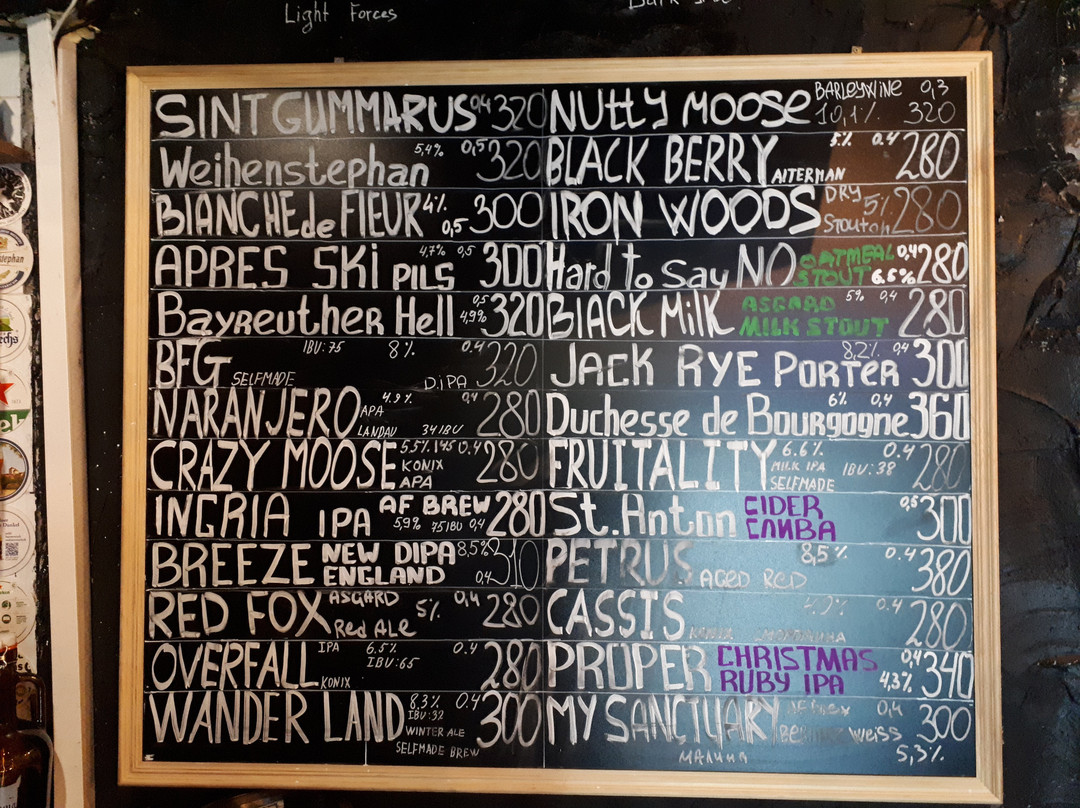 Light Forces
SINT GUMMARUS 0,4 320
Weihenstephan 5,4% 0,5 320
BLANCHE de FLEUR 4% 0,5 300
APRES SKi PILS 4,7% 0,5 300
Bayreuther Hell 0,5 4,9% 320
BFG SELFMADE IBU:75 8% 0.4 D.iPA 320
NARANJERO APA 4.9% 0,4 LANDAU 34 IBU 280
CRAZY MOOSE 5.5% 0.4 KONIX APA 280
INGRIA IPA AF BREW 5,9% 75IBU 0,4 280
BREEZE NEW ENGLAND DIPA 8,5% 0,4 310
RED FOX ASGARD Red Ale 5% 0,4 280
OVERFALL IPA KONIX 6.5% IBU:65 0.4 280
WANDER LAND 8,3% 0.4 IBU:32 WINTER ALE 300
SELFMADE BREW
NUttY MOOSE BARLEYWINE 0,3 10,1% 320
BLACK BERRY AlTERMAN 5% 0.4 280
IRON WOODS DRY Stout 5% 280
Hard to Say NO OATMEAL STOUT 0,4 6.6% 280
BlACK MiLK ASGARD MILK STOUT 5% 0,4 280
JACK RYE PORTER 8,2% 0,4 300
Duchesse de Bourgogne 6% 0,4 360
FRUITALITY 6.6% MILK IPA SELFMADE IBU:38 0.4 280
St.Anton CIDER 0,5 300
PETRUS AGED RED 8,5% 0.4 380
CASSIS KONIX 0.4 280
PROPER CHRISTMAS RUBY IPA 0,4 4,3% 340
MY SANCTUARY AF brew Berliner Weiss 0,4 300
МАЛИНА 5,3%